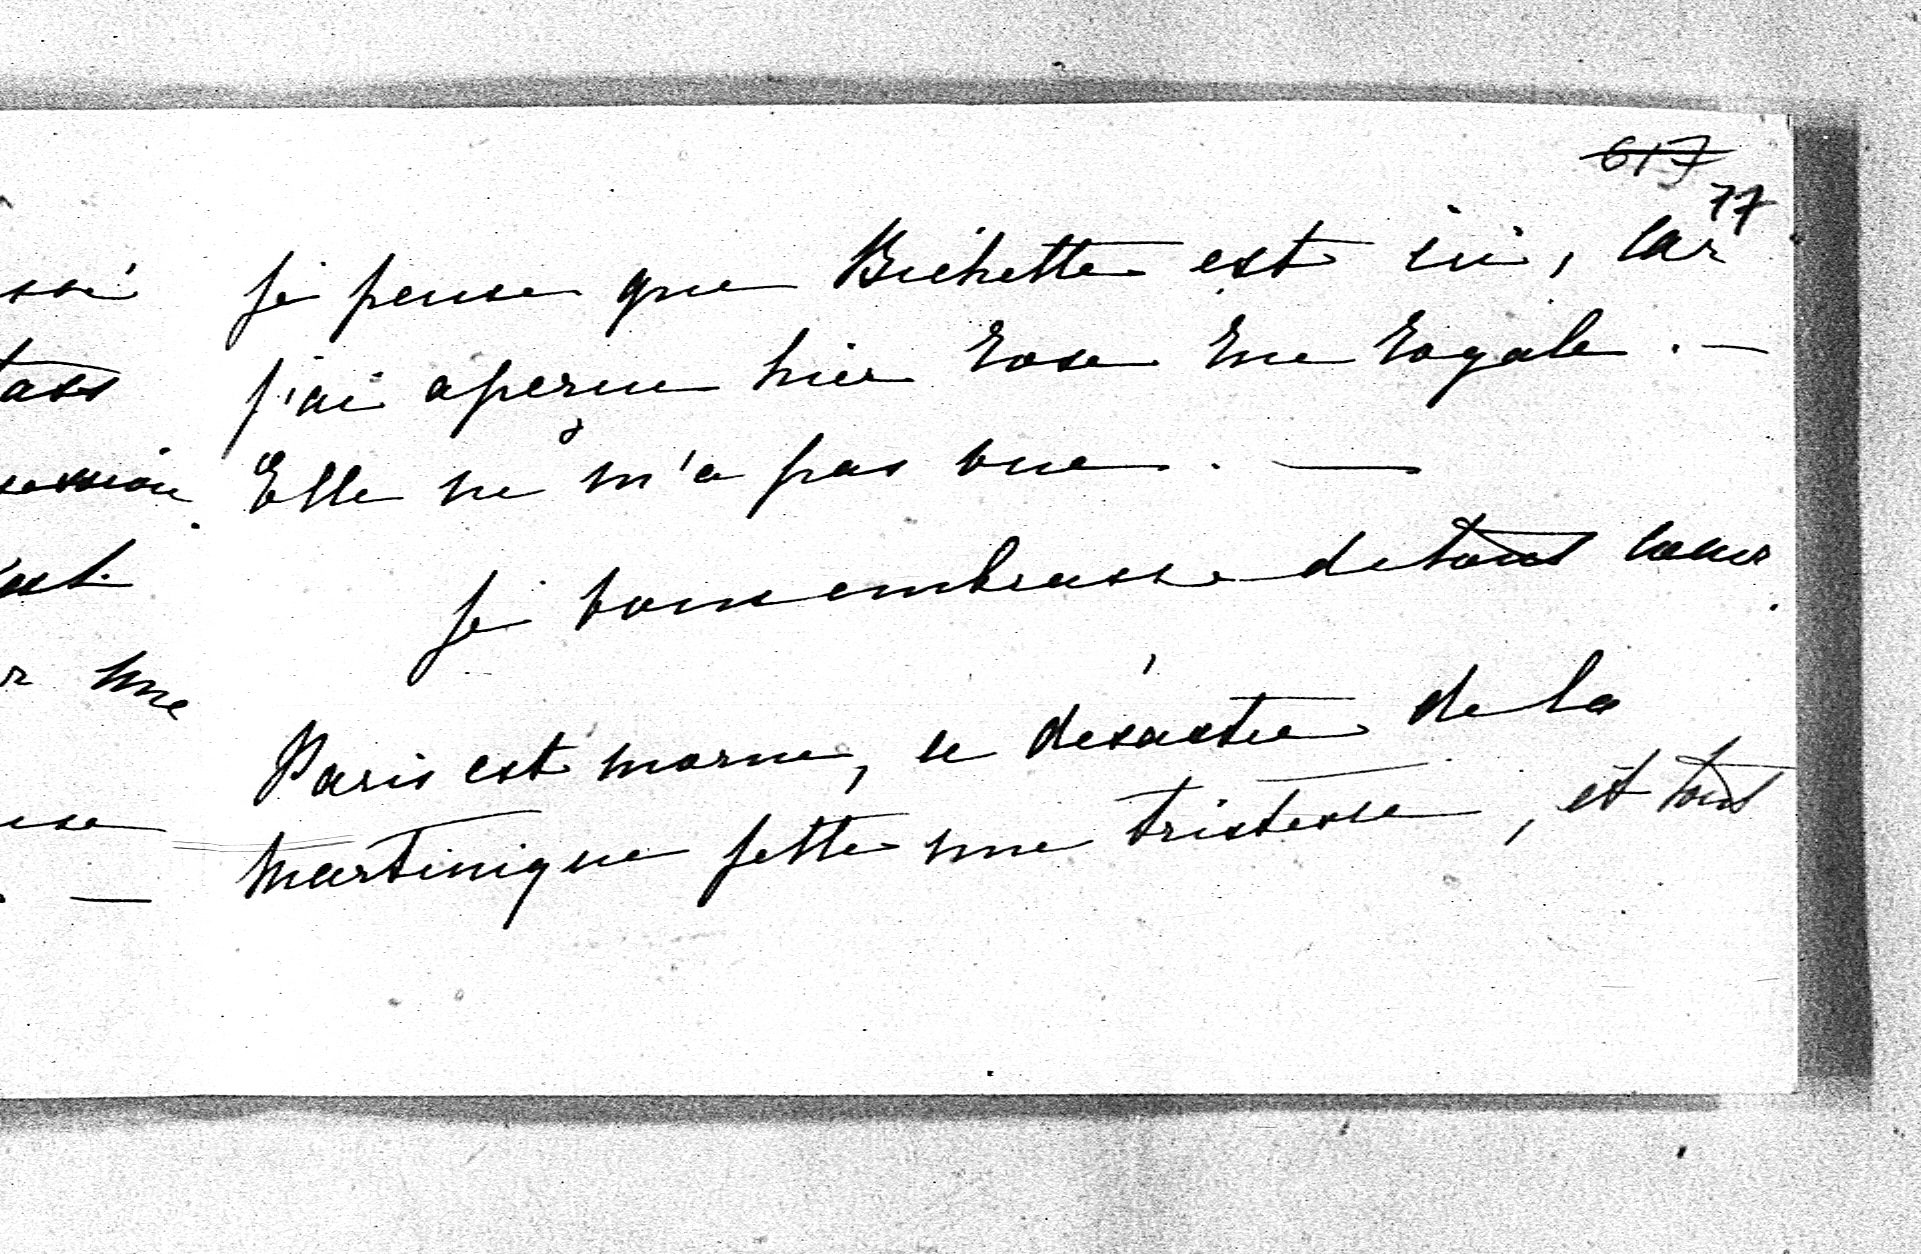 617
77
Je pense que Bichette est ici, car
j'ai aperçu hier Rose Rue Royale. —
Elle ne m'a pas vue. —
Je vous embrasse de tout cœur.
Paris est morne, le désastre de la
Martinique jette une tristesse, et tout
une